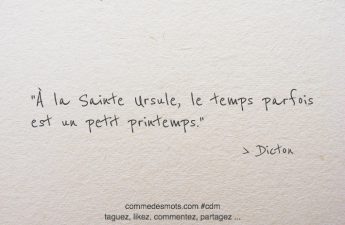 "À la Sainte Ursule, le temps parfois
est un petit printemps."
> Dicton
commedesmots.com #cdm
taguez, likez, commentez, partagez ...